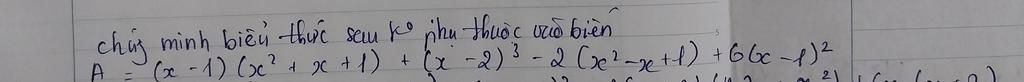 chứg minh biểu thức sau ko phụ thuộc vào biến
A = (x - 1) (x² + x + 1) + (x - 2)³ - 2 (x² - x + 1) + 6(x - 1)²